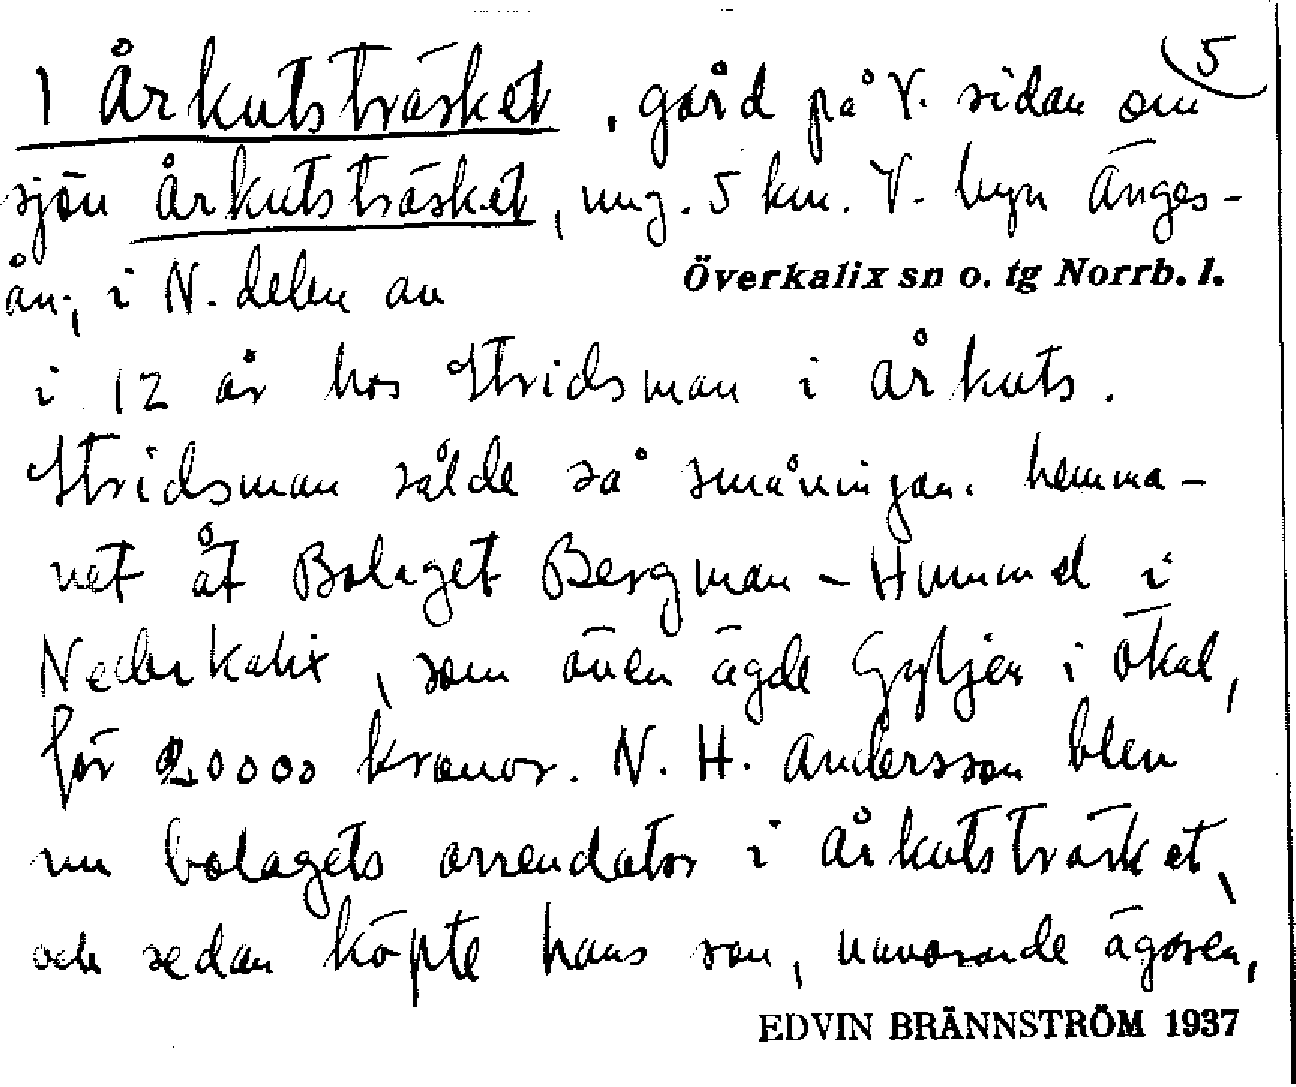 5
1 Årkutsträsket, gård på V. sidan om
sjön Årkutsträsket, ung. 5 km. V. byn Änges-
ån, i N. delen av
Överkalix sn o. tg Norrb. l.
i 12 år hos Stridsman i Årkuts.
Stridsman sålde så småningom hemma-
net åt Bolaget Bergman - Hummel i
Nederkalix, som även ägde Gyljen i Ökal,
för 20000 kronor. N. H. Andersson blev
nu bolagets arrendator i Årkutsträsket,
och sedan köpte hans son, nuvarande ägaren,
EDVIN BRÄNNSTRÖM 1937